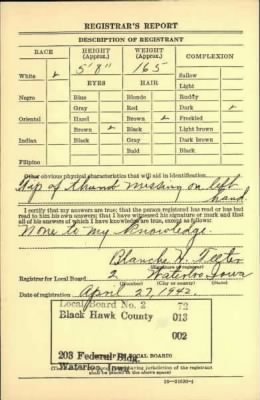 REGISTRAR'S REPORT
DESCRIPTION OF REGISTRANT
RACE HEIGHT (Approx.) WEIGHT (Approx.) COMPLEXION
5'8" 165
White Sallow
EYES HAIR Light
Negro Blue Blonde Ruddy
Gray Red Dark
Oriental Hazel Brown Freckled
Brown Black Light brown
Indian Black Gray Dark brown
Bald Black
Filipino
Other obvious physical characteristics that will aid in identification
Tip of thumb missing on left
hand.
I certify that my answers are true; that the person registered has read or has had
read to him his own answers; that I have witnessed his signature or mark and that
all of his answers of which I have knowledge are true, except as follows:
None to my knowledge.
Blanche
(Signature of registrar)
Registrar for Local Board 2 Waterloo Iowa
(Number) (City or county) (State)
Date of registration April 27, 1942.
Local Board No. 2 72
Black Hawk County 013
002
203 Federal Bldg.
Waterloo, Iowa
LOCAL BOARD)
of the registrant shall
be placed in the above space.)
16-21630-1